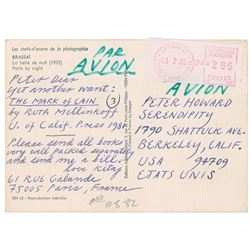 Les chefs-d'œuvre de la photographie
BRASSAÏ
La belle de nuit (1933)
Paris by night
PAR
AVION
Peter Dear
yet another want:
THE MARK OF CAIN
3
by Ruth Mellinkoff
U. of Calif. Press 198
Please send all books
very well packed separately
and send me a bill.
love Kitaj
61 RUE Galande
75005 Paris, France
CH 13 - Reproduction interdite
265
AVION
PETER HOWARD
SERENDIPITY
1790 SHATTUCK AVE
BERKELEY, CALIF.
USA 94709
ETATS UNIS
10-8-82